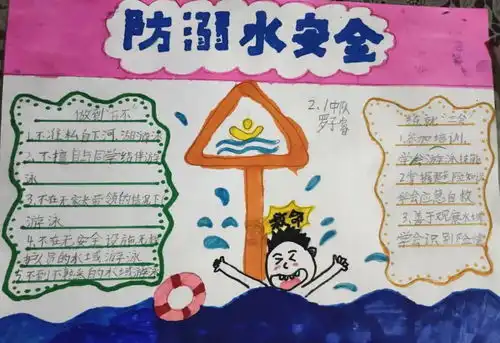 防溺水安全
做到"六不"
1.不准私自下河、湖游泳
2.不擅自与同学结伴游
泳
3.不在不家长带领的情况下
游泳
4.不在无安全设施无救
护人员的水域游泳
5.不到不熟悉的水域游泳
2.1中队
罗子睿
救命
"练就"三会
1.参加培训,
学会游泳技能
2.掌握避险知识
学会应急自救
3.善于观察水域
学会识别险情